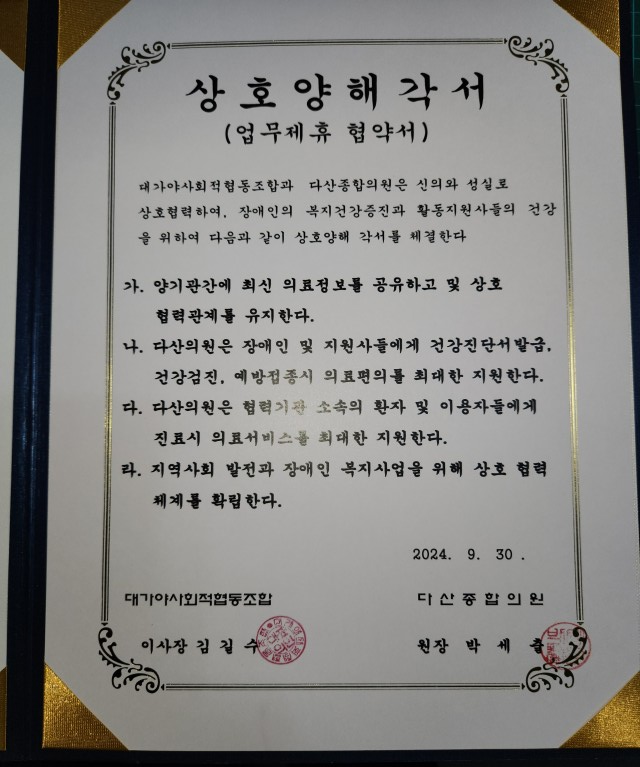 상호양해각서
(업무제휴 협약서)
대가야사회적협동조합과 다산종합의원은 신의와 성실로
상호협력하여, 장애인의 복지건강증진과 활동지원사들의 건강
을 위하여 다음과 같이 상호양해 각서를 체결한다
가. 양기관간에 최신 의료정보를 공유하고 및 상호
협력관계를 유지한다.
나. 다산의원은 장애인 및 지원사들에게 건강진단서발급,
건강검진, 예방접종시 의료편의를 최대한 지원한다.
다. 다산의원은 협력기관 소속의 환자 및 이용자들에게
진료시 의료서비스를 최대한 지원한다.
라. 지역사회 발전과 장애인 복지사업을 위해 상호 협력
체계를 확립한다.
2024. 9. 30.
대가야사회적협동조합 다산종합의원
이사장 김길수 원장 박세